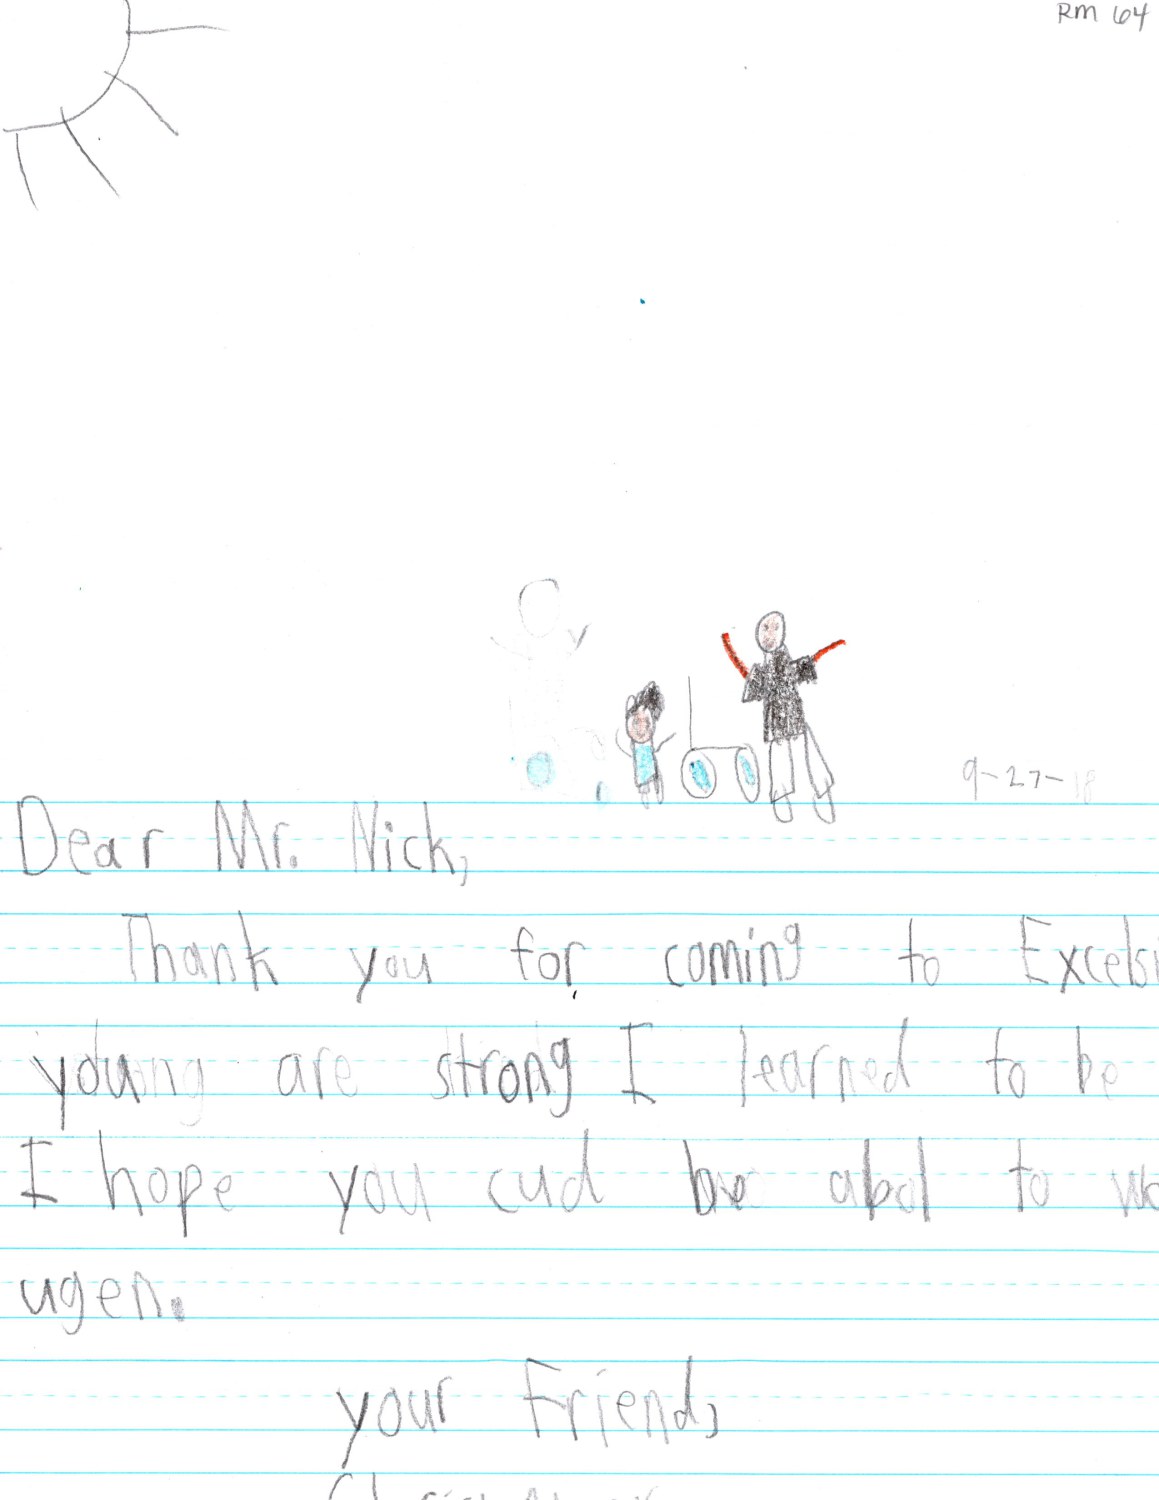 RM 64
9-27-18
Dear Mr. Nick,
Thank you for coming to Excelsi
are strong I learned to be
I hope you cud be abol to
ugen.
your Friend,